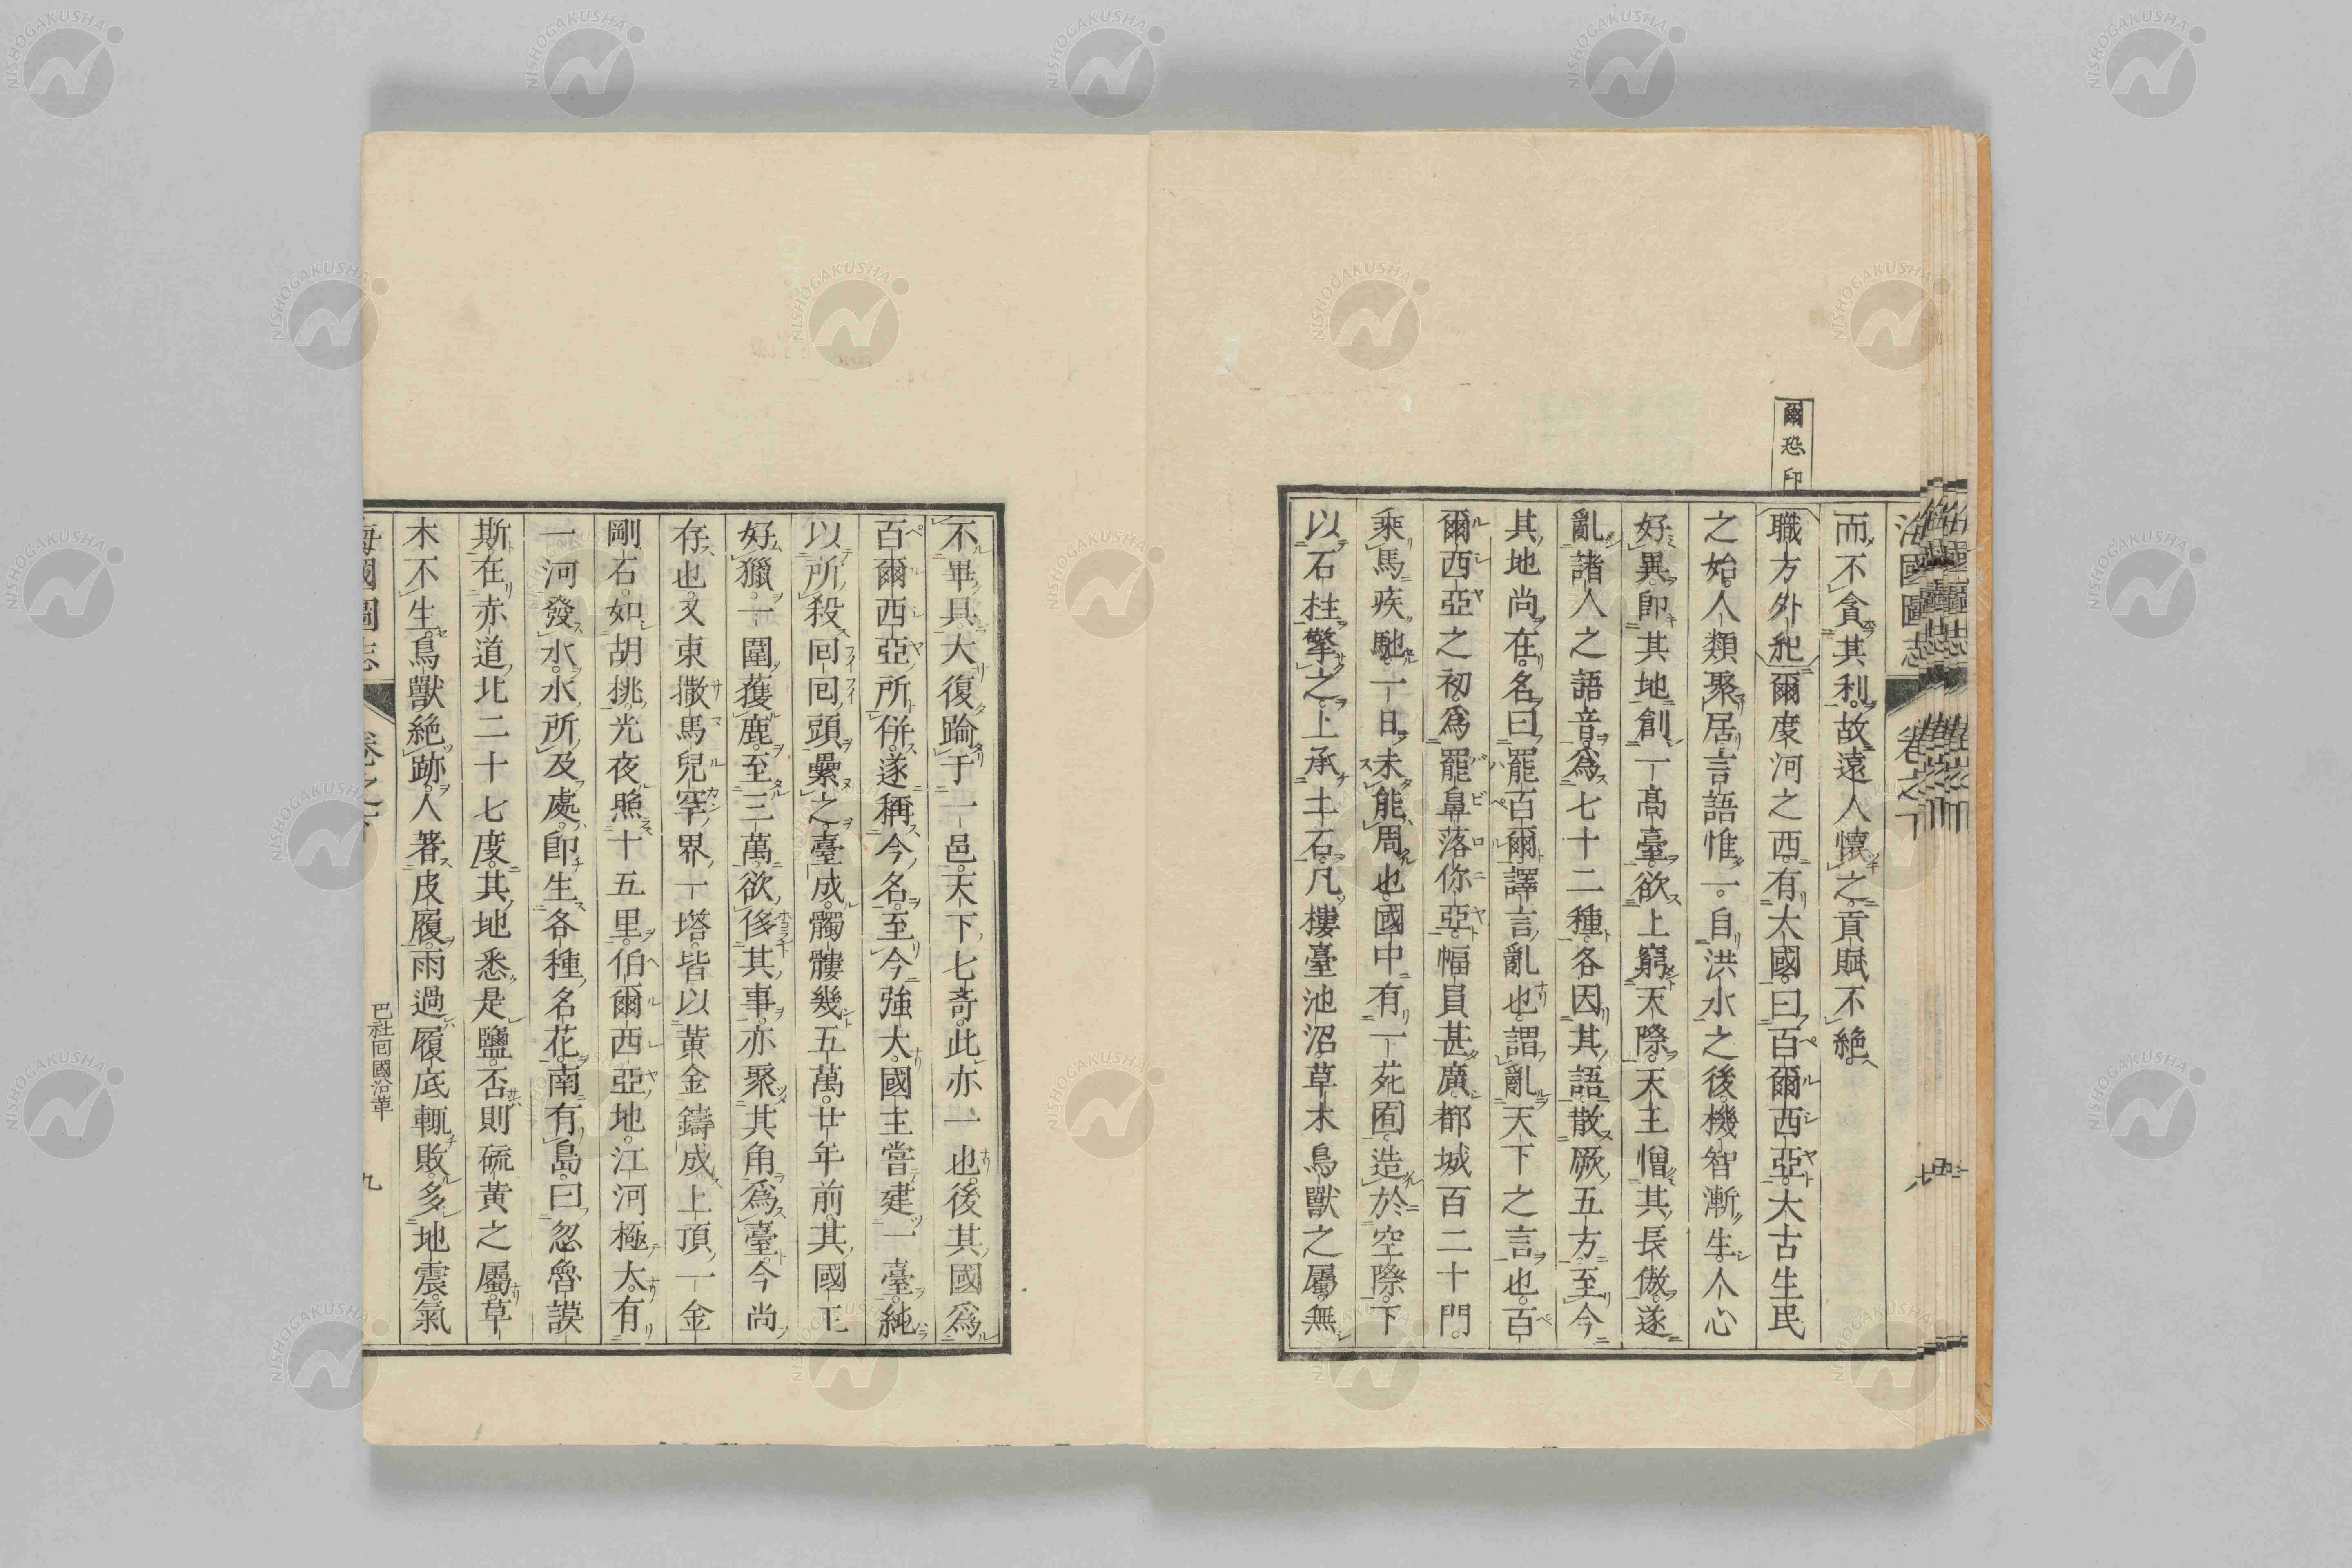 爾恐印
海國圖志 卷之下
而不貪其利。故遠人懷之。貢賦不絶。
職方外紀爾度河之西。有大國。曰百爾西亞。太古生民
之始。人類聚居。言語惟一。自洪水之後。機智漸生。人心
好異。卽其地創一高臺。欲上窮天際。天主憎其長傲。遂
亂諸人之語音。爲七十二種。各因其語。散厥五方。至今
其地尚在。名曰罷百爾。譯言亂也。謂亂天下之言也。百
爾西亞之初。爲罷鼻落你亞。幅員甚廣。都城百二十門。
乘馬疾馳。一日未能周也。國中有一苑囿。造於空際。下
以石柱擎之。上承土石。凡樓臺池沼。草木鳥獸之屬。無
不畢具。大復踰于一邑。天下七奇。此亦一也。後其國爲
百爾西亞所併。遂稱今名。至今強大。國主嘗建一臺。純
以所殺回回頭纍之。臺成。髑髏幾五萬。廿年前。其國王
好獵。一圍獲鹿。至三萬。欲侈其事。亦聚其角爲臺。今尚
存也。又東撒馬兒罕界。一塔。皆以黃金鑄成。上頂。一金
剛石。如胡挑。光夜照十五里。伯爾西亞地。江河極大。有
一河發水。水所及處。卽生各種名花。南有島。曰忽魯謨
斯。在赤道北二十七度。其地悉是鹽。否則硫黃之屬。草
木不生。鳥獸絶跡。人著皮履。雨過履底輒敗。多地震。氣
海國圖志 卷之下 巴社回國沿革 九